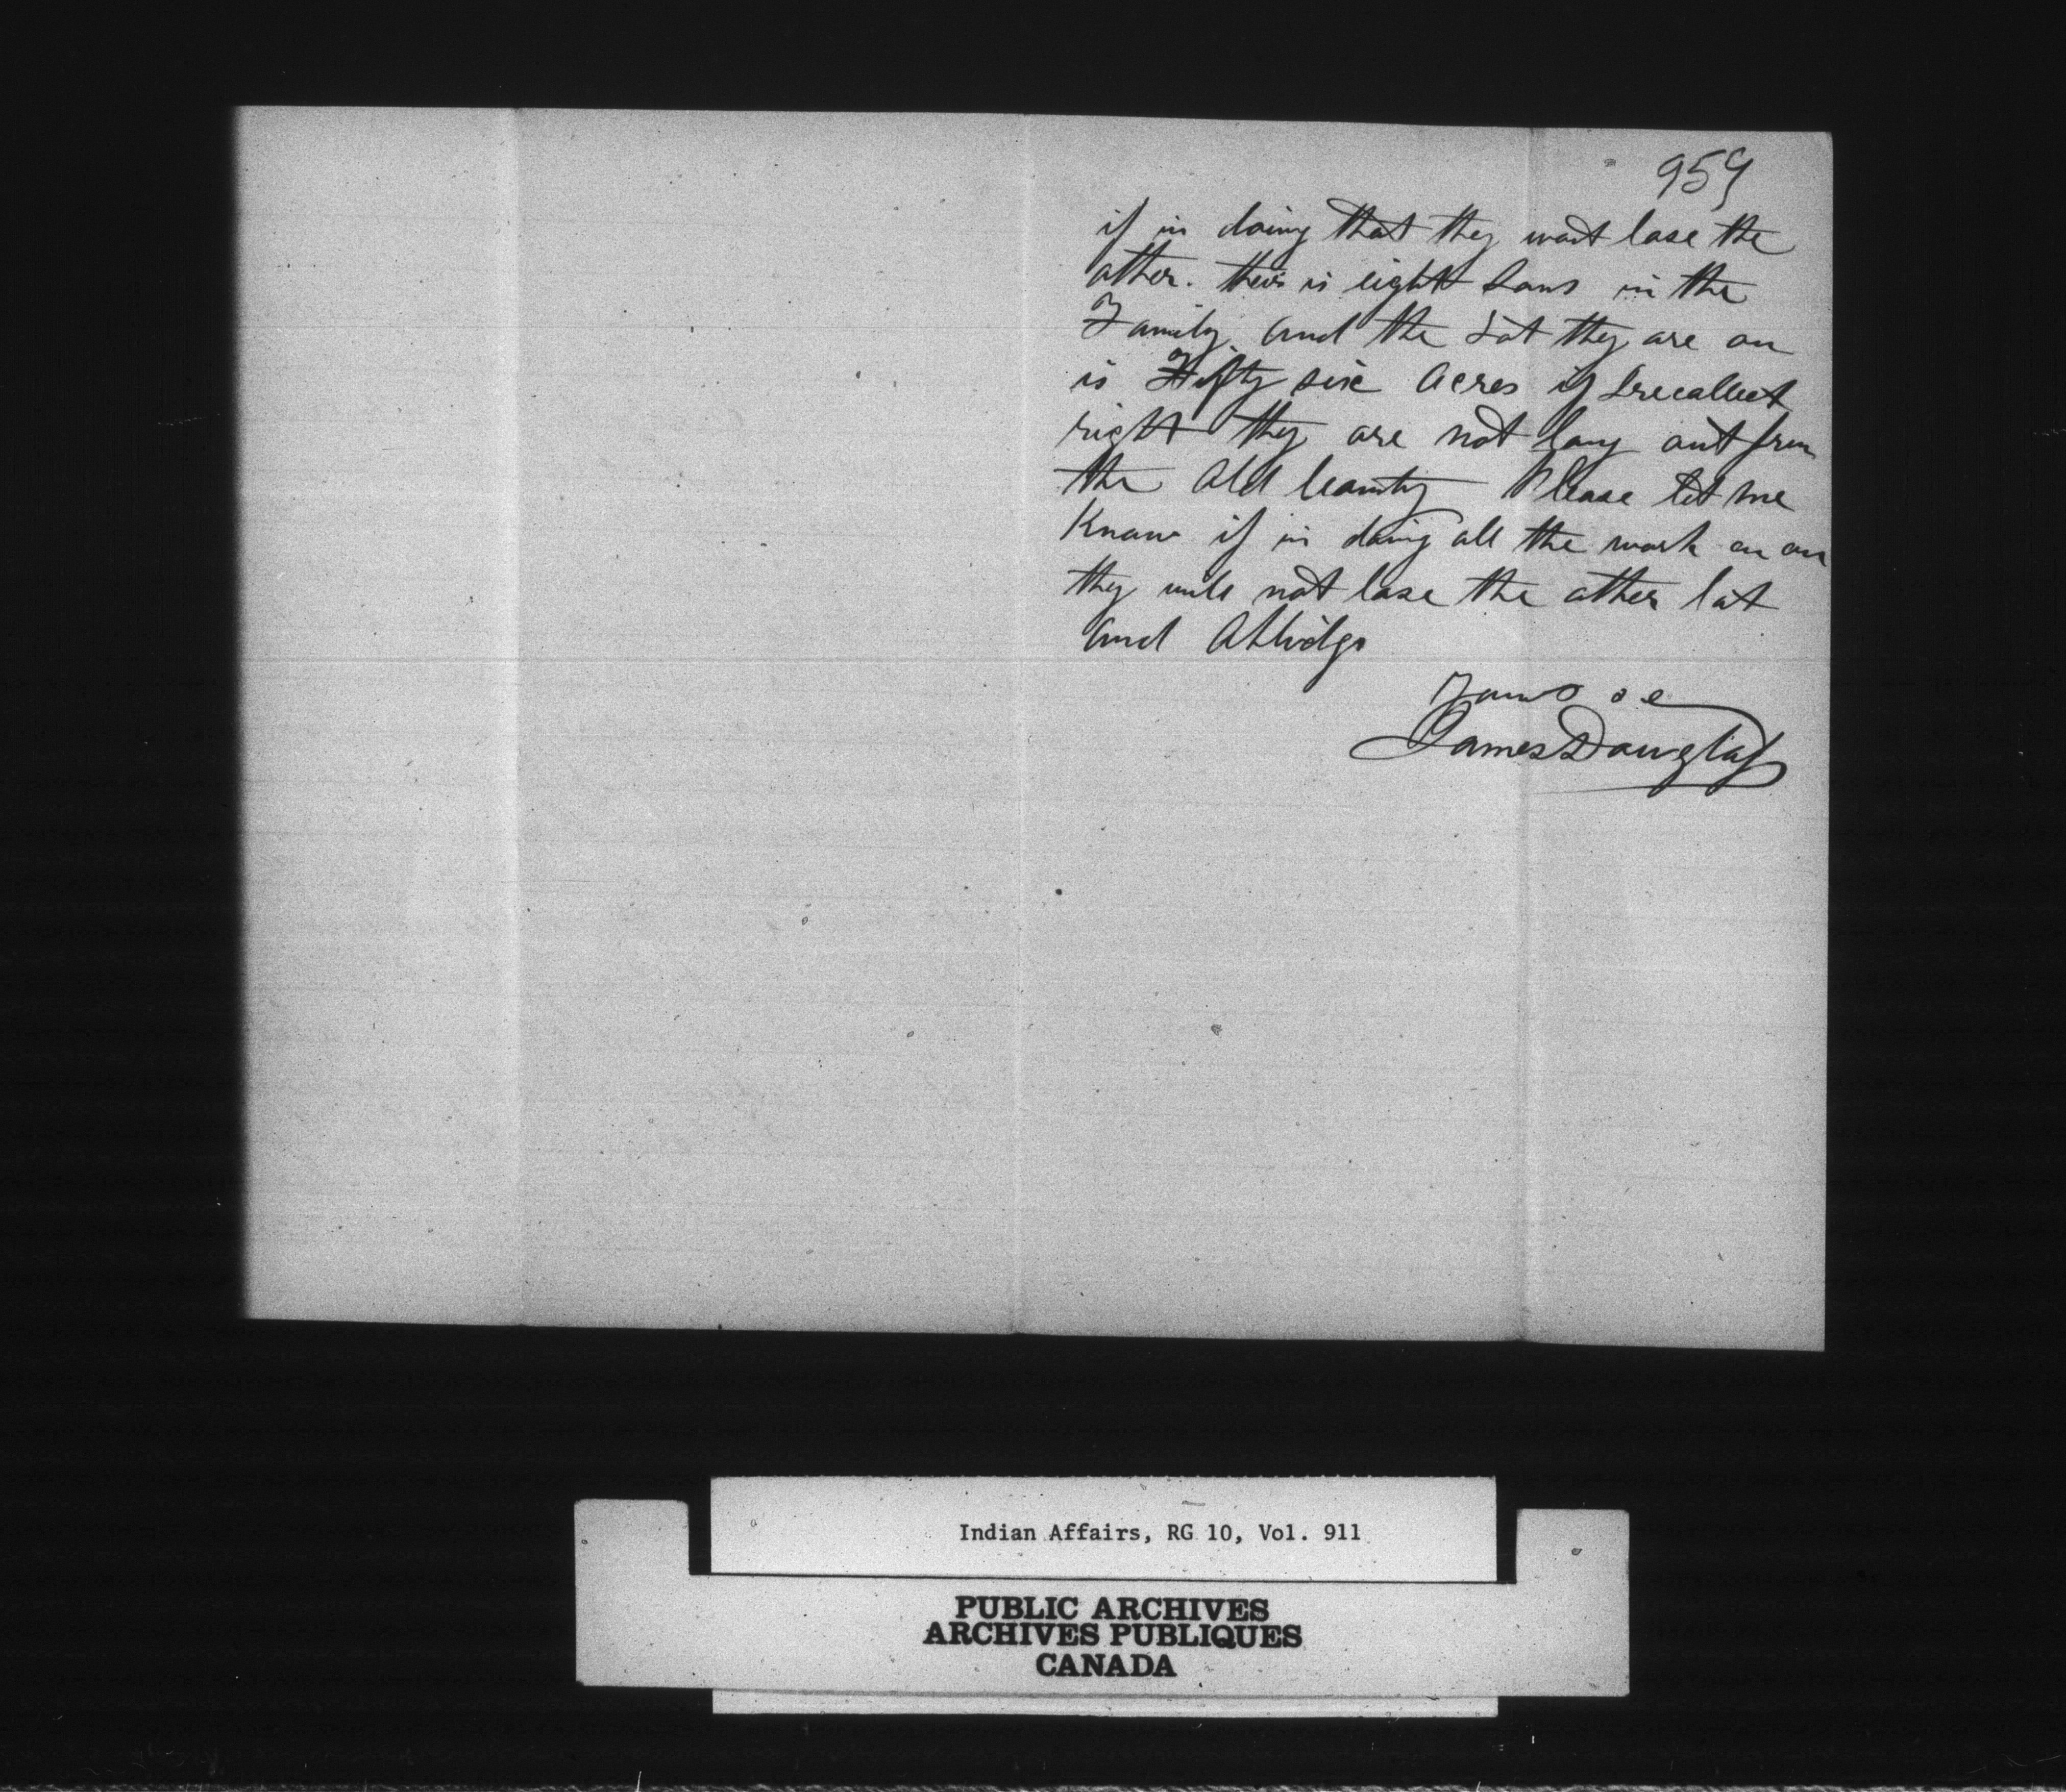 959
if in doing that they wont lose the
other. their is eight Sons in the
Family. and the Lot they are on
is Fifty six Acres if I recollect
right they are not long out from
the Old Country Please let me
Know if in doing all the work on one
they will not lose the other lot
and Oblidge
Yours &c
James Douglass
Indian Affairs, RG 10, Vol. 911
PUBLIC ARCHIVES
ARCHIVES PUBLIQUES
CANADA